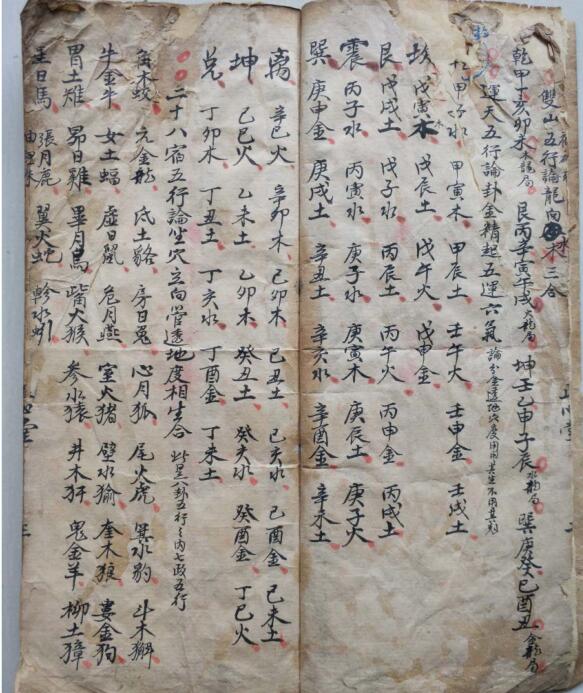 雙山五行論龍向水三合
乾甲丁亥卯未木龍局 艮丙辛寅午戌火龍局 坤壬乙申子辰水龍局 巽庚癸巳酉丑金龍局
運天五行論卦金精起五運六氣
甲子水 甲寅木 甲辰土 壬午火 壬申金 壬戌土
坎 戊寅木 戊辰土 戊午火 戊申金
艮 戊戌土 戊子水 丙辰土 丙午火 丙申金 丙戌土
震 丙子水 丙寅水 庚子水 庚寅木 庚辰土 庚子火
巽 庚申金 庚戌土 辛丑土 辛亥水 辛酉金 辛未土
离 辛巳火 辛卯木 己卯木 己丑土 己亥水 己酉金 己未土
坤 己巳火 乙未土 乙卯木 癸丑土 癸亥水 癸酉金 丁巳火
兑 丁卯木 丁丑土 丁亥水 丁酉金 丁未土
二十八宿五行論坐穴立向管透地度相生合 此是八卦五行之内七政五行
角木蛟 亢金龍 氐土貉 房日兔 心月狐 尾火虎 箕水豹 斗木獬
牛金牛 女土蝠 虚日鼠 危月燕 室火猪 壁水㺄 奎木狼 婁金狗
胃土雉 昴日雞 畢月烏 觜火猴 參水猿 井木犴 鬼金羊 柳土獐
星日馬 張月鹿 翼火蛇 軫水蚓